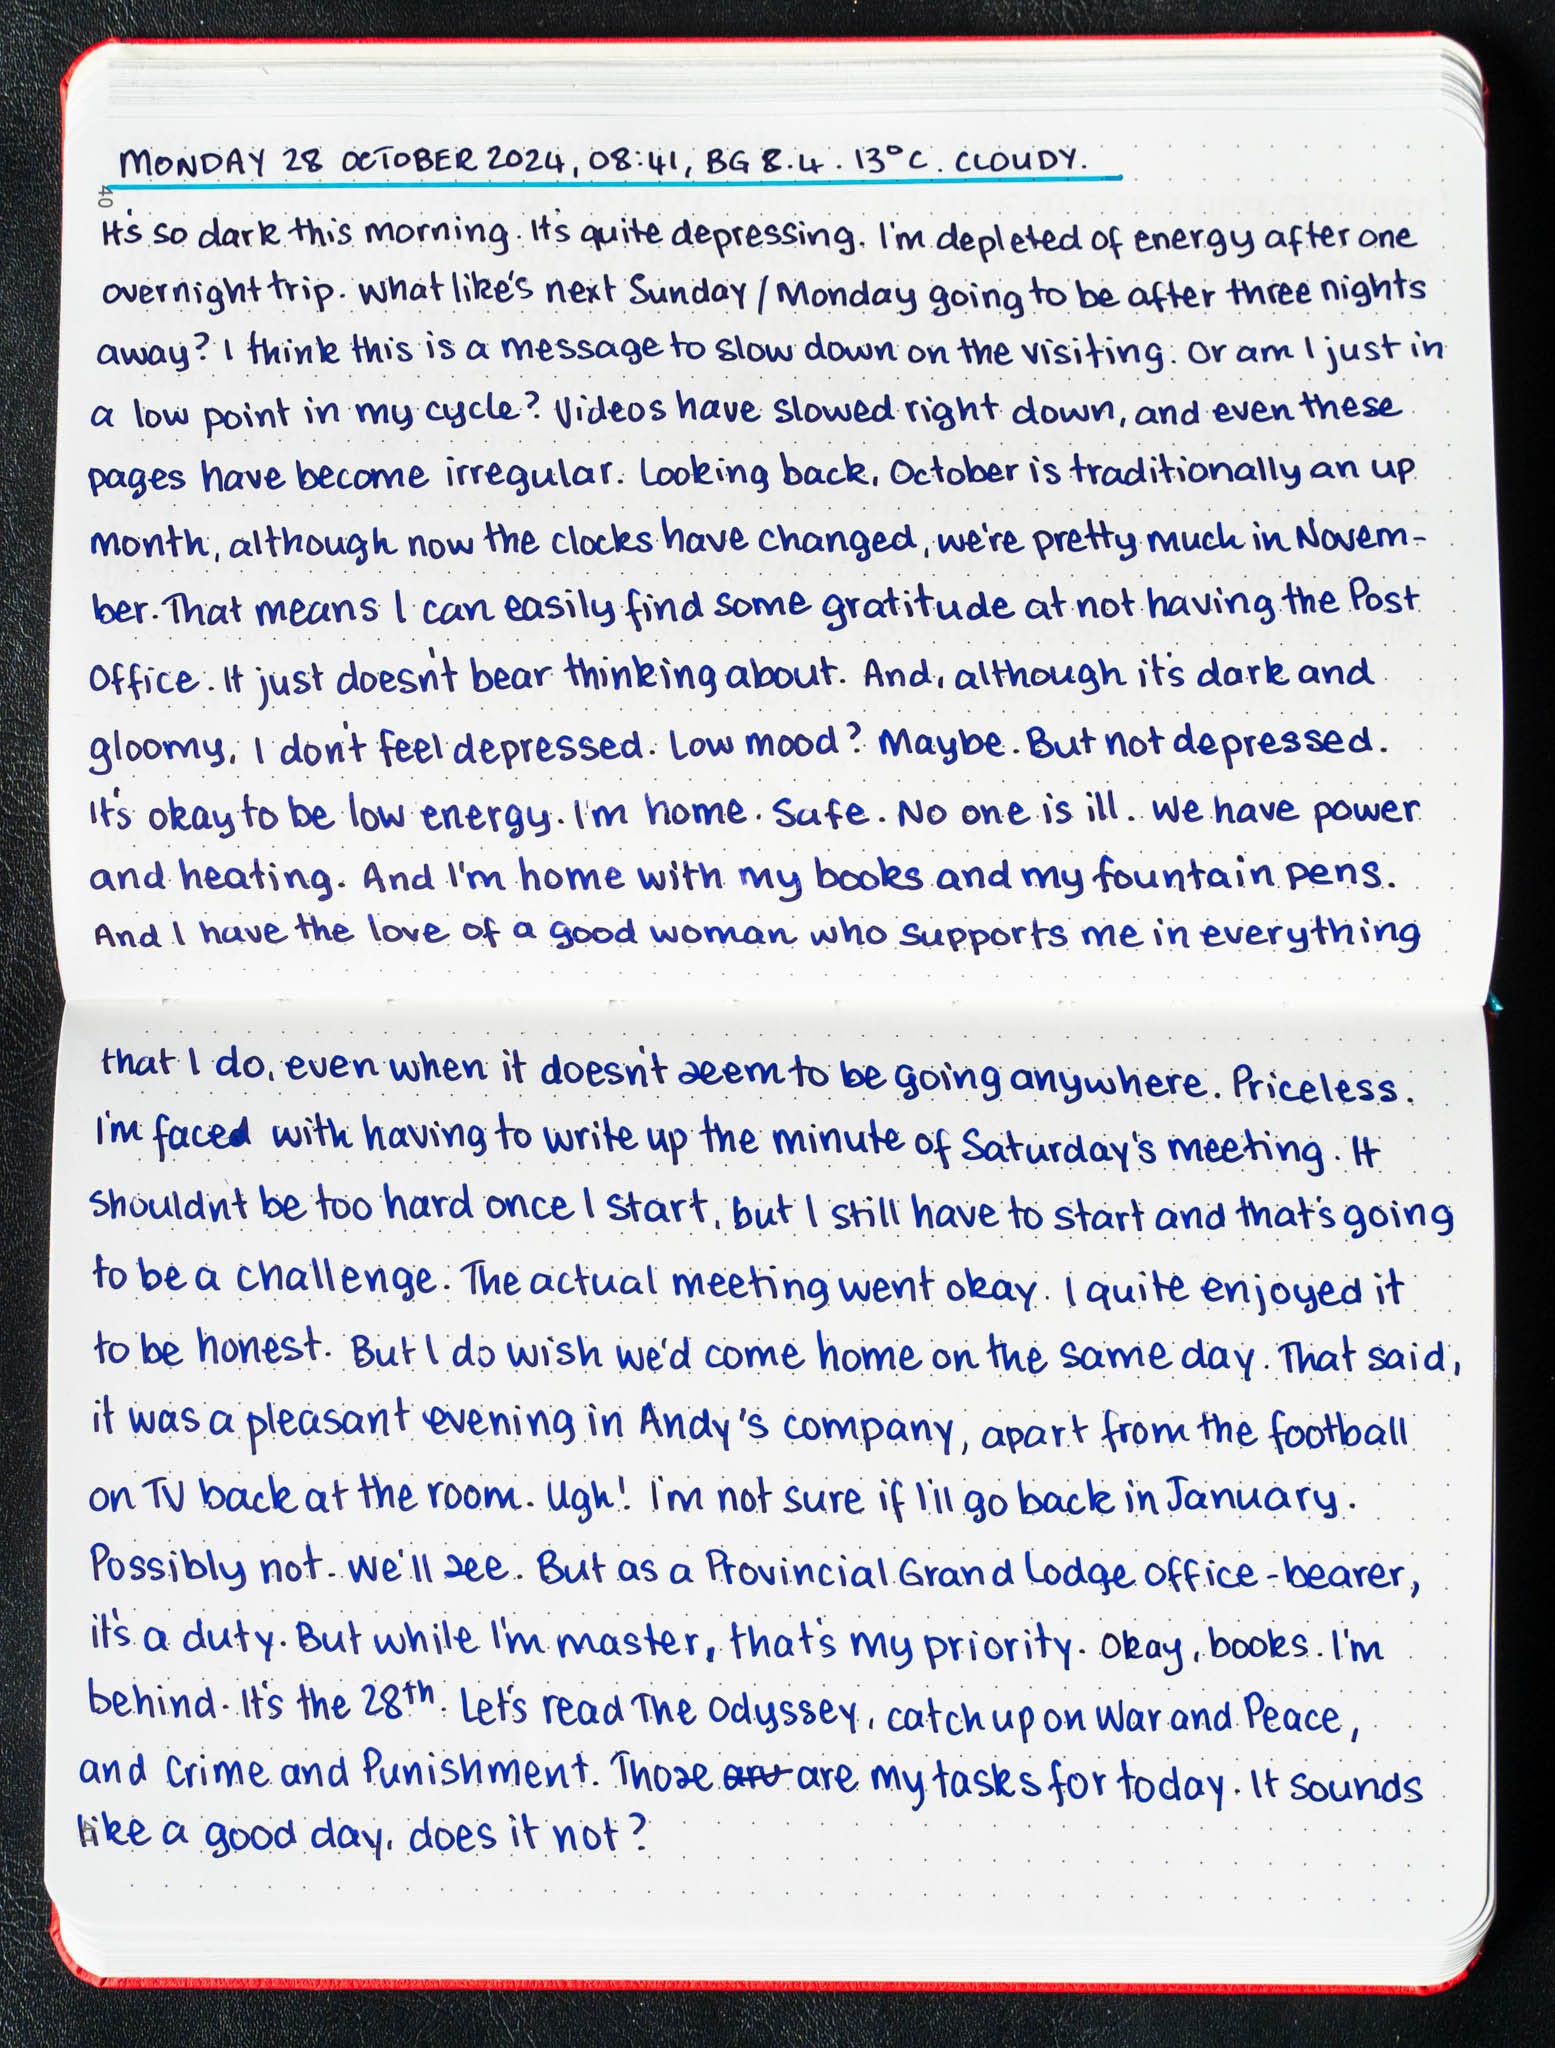 MONDAY 28 OCTOBER 2024, 08:41, BG 8.4. 13°C. CLOUDY.
40
It's so dark this morning. It's quite depressing. I'm depleted of energy after one
overnight trip. What like's next Sunday/Monday going to be after three nights
away? I think this is a message to slow down on the visiting. Or am I just in
a low point in my cycle? Videos have slowed right down, and even these
pages have become irregular. Looking back, October is traditionally an up
month, although now the clocks have changed, we're pretty much in Novem-
ber. That means I can easily find some gratitude at not having the Post
Office. It just doesn't bear thinking about. And, although it's dark and
gloomy, I don't feel depressed. Low mood? Maybe. But not depressed.
It's okay to be low energy. I'm home. Safe. No one is ill. We have power
and heating. And I'm home with my books and my fountain pens.
And I have the love of a good woman who supports me in everything
that I do, even when it doesn't seem to be going anywhere. Priceless.
I'm faced with having to write up the minute of Saturday's meeting. It
shouldn't be too hard once I start, but I still have to start and that's going
to be a challenge. The actual meeting went okay. I quite enjoyed it
to be honest. But I do wish we'd come home on the same day. That said,
it was a pleasant evening in Andy's company, apart from the football
on TV back at the room. Ugh! I'm not sure if I'll go back in January.
Possibly not. We'll see. But as a Provincial Grand Lodge office-bearer,
it's a duty. But while I'm master, that's my priority. Okay, books. I'm
behind. It's the 28th. Let's read The Odyssey, catch up on War and Peace,
and Crime and Punishment. Those are my tasks for today. It sounds
like a good day, does it not?